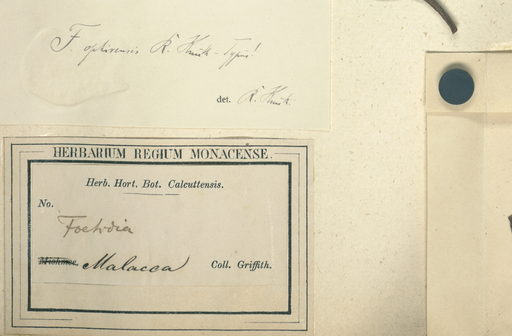 F. ophirensis R. Knuth – Typus!
det. R. Knuth
HERBARIUM REGIUM MONACENSE.
Herb. Hort. Bot. Calcuttensis.
No.
Foetidia
Malacca Coll. Griffith.